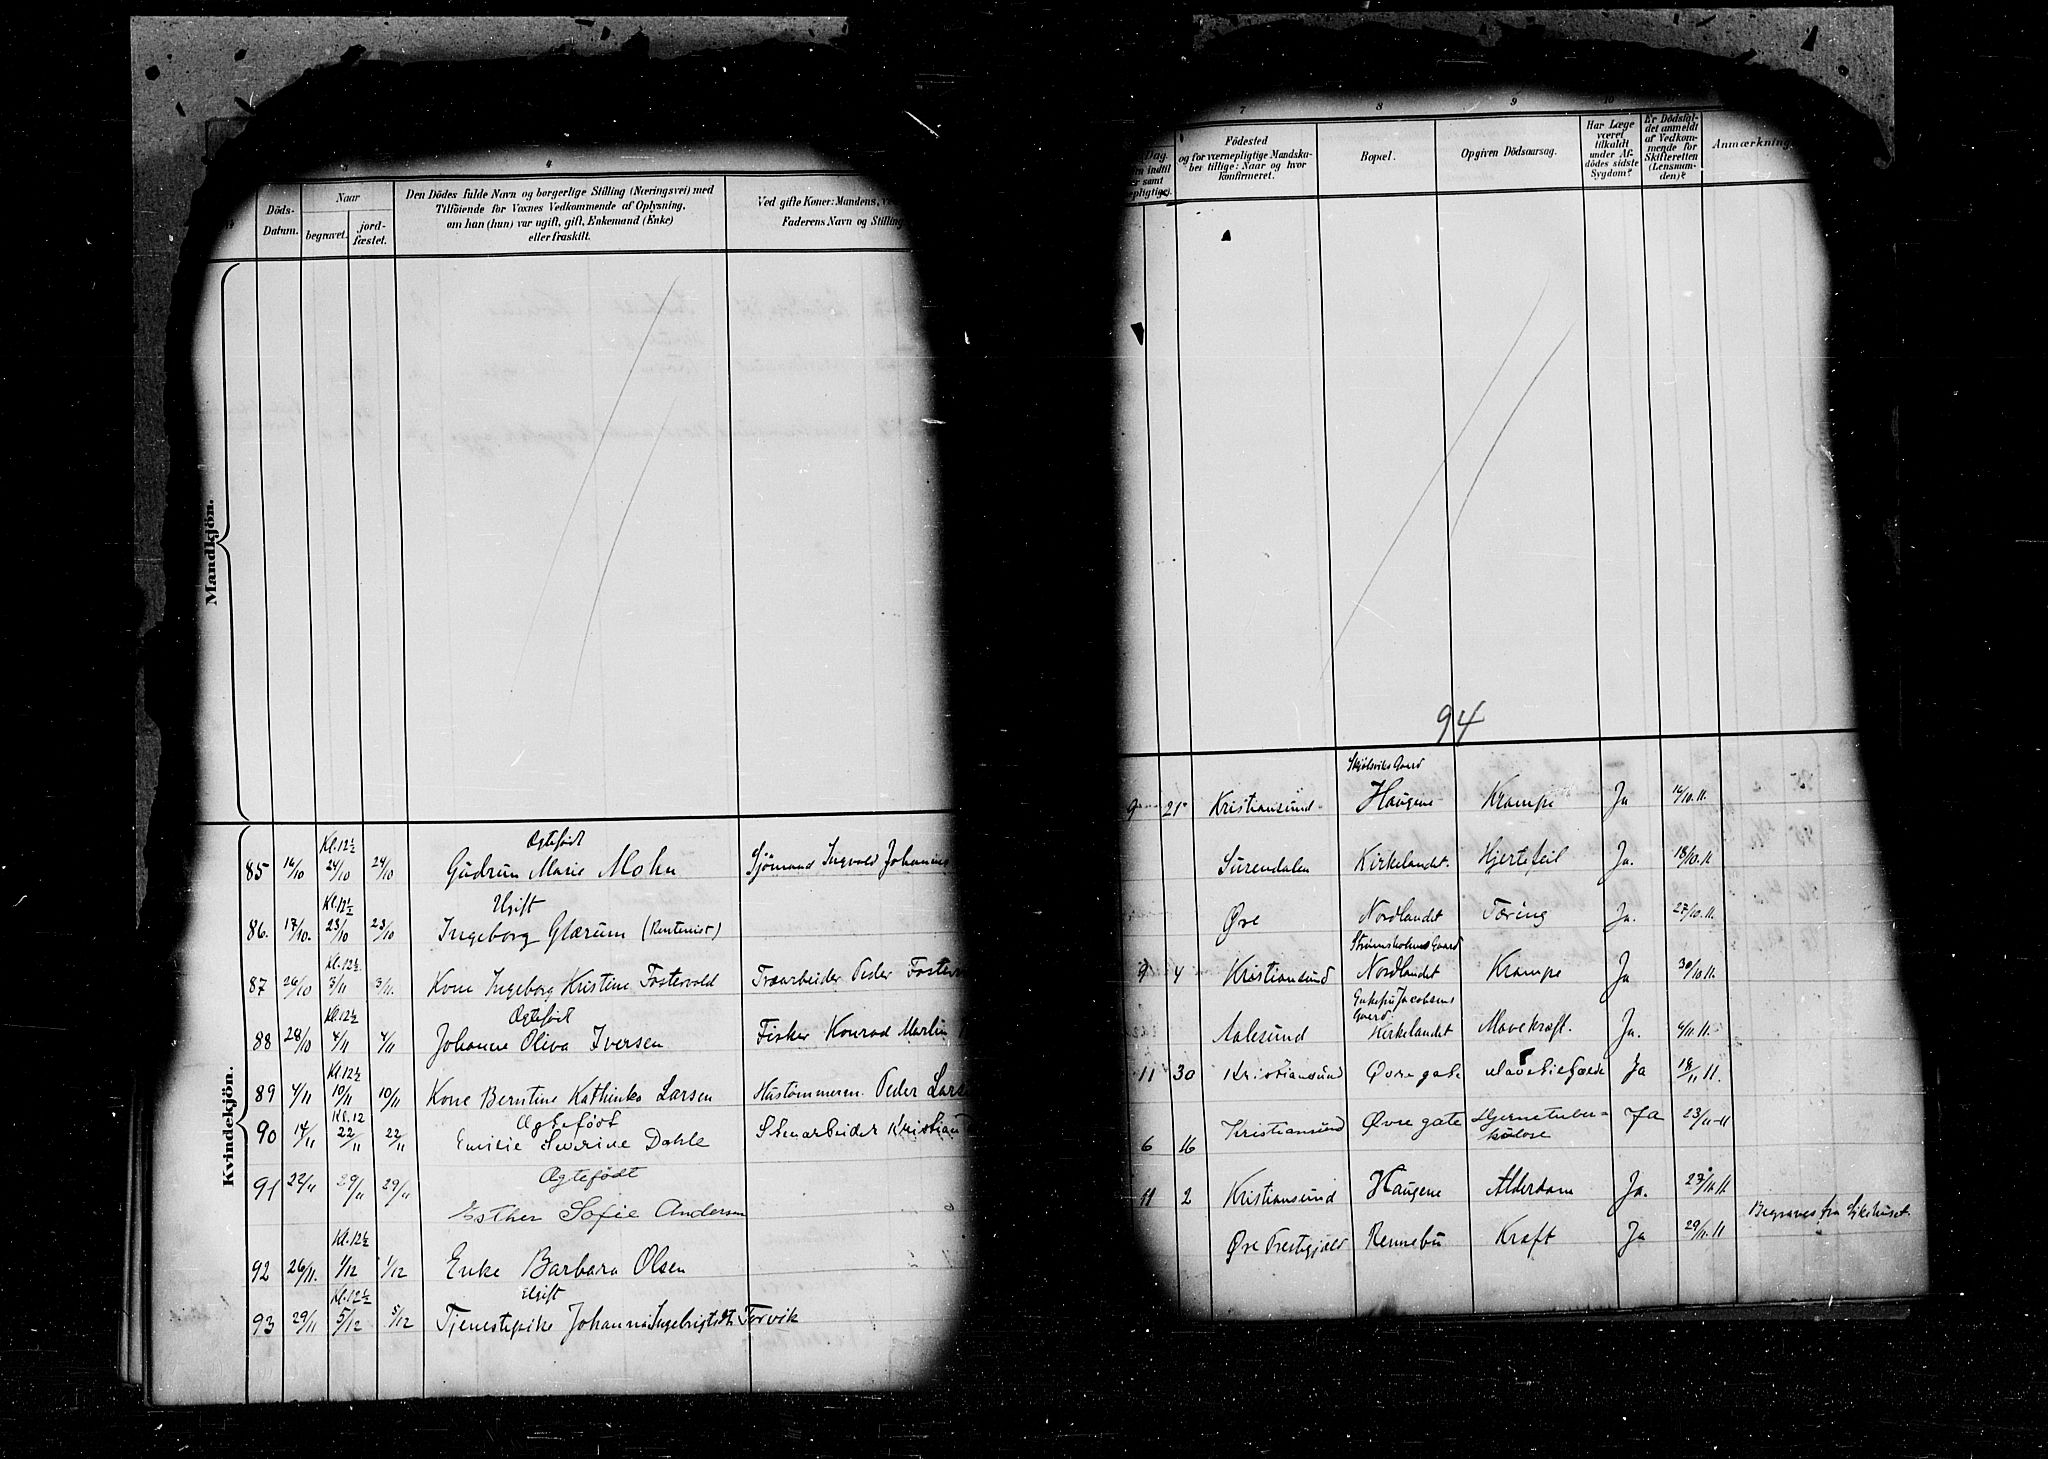 3
4
Döds-
Datum.
Naar
begravet.
jord-
fæstet.
Den Dödes fulde Navn og borgerlige Stilling (Næringsvei) med
Tilföiende for Voxnes Vedkommende af Oplysning,
om han (hun) var ugift, gift, Enkemand (Enke)
eller fraskilt.
Ved gifte Koner: Mandens, v
Faderens Navn og Stilling
Mandkjön.
Kvindekjön.
Kl. 12½ Ægtefödt
85 14/10 24/10 24/10 Gudrun Marie Mohn Sjömand Ingvald Johannes
Kl. 12½ Ugift
86. 17/10. 23/10 23/10 Ingeborg Glærum (Rentenist)
Kl. 12½
87 26/10 3/11 3/11. Kone Ingeborg Kristine Fostervold Træarbeider Peder Foster
Kl. 12½ Ægtefödt
88 28/10 4/11 4/11 Johanne Oliva Iversen Fisker Konrad Martin
Kl. 12½
89 4/11 10/11 10/11 Kone Berntine Kathinka Larsen Hustömmerm. Peder Lars
Kl. 12 Ægtefödt
90 14/11 22/11 22/11 Emilie Severine Dahle Stenarbeider Kristian
Ægtefödt
91 22/11 29/11 29/11 Esther Sofie Andersen
Kl. 12½
92 26/11. 1/12 1/12 Enke Barbara Olsen
Kl. 12½ Ugift
93 29/11 5/12 5/12 Tjenestepike Johanna Ingebrigtsdtr Torvik
7
8
9
10
Dag
indtil
samt
pligtige).
Födested
og for værnepligtige Mandska-
ber tillige: Naar og hvor
konfirmeret.
Bopæl.
Opgiven Dödsaarsag.
Har Læge
været
tilkaldt
under Af-
dödes sidste
Sygdom?
Er Dödsfal-
det anmeldt
af Vedkom-
mende for
Skifteretten
(Lensman-
den)?
Anmærkning.
94
Skjølsviks Gaard
9 21 Kristiansund Haugene Krampe Ja 16/10.11.
Surendalen Kirkelandet. Hjertefeil Ja. 18/10.11
Øre Nordlandet Tæring Ja. 27/10.11.
Strømsholmes Gaard
9 4 Kristiansund Nordlandet Krampe Ja 30/10.11.
Enkefru Jacobsens
Gaard
Aalesund Kirkelandet Mavekræft. Ja. 4/11 11.
11 30 Kristiansund Øvregate Ja 18/11 11.
6 16 Kristiansund Øvregate Hjernetuber-
kulose Ja 23/11-11
11 2 Kristiansund Haugene Alderdom Ja. 27/11.11.
Øre Prestegjæld Rennebu Kræft Ja 29/11.11 Begraves fra Likhuset.